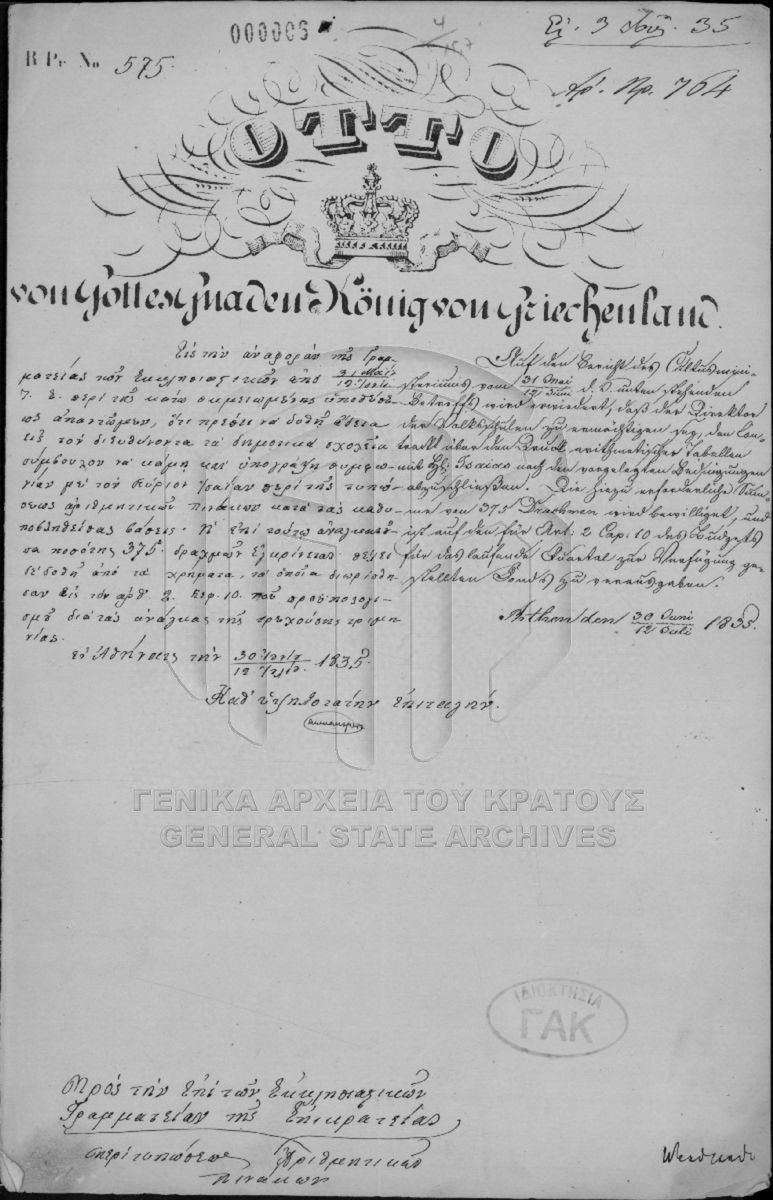 000006
Εἰ. 3 Ἰουλ. 35
R Pr No 575.
Ἀρ. Πρ. 764
OTTO
von Gottes Gnaden König von Griechenland.
Εἰς τὴν ἀναφορὰν τῆς Γραμ-
ματείας τῶν Ἐκκλησιαστικῶν ἀπὸ 31 Μαΐ / 12 Ἰουνίου
ἔ. περὶ τῆς κάτω σημειωμένης ὑποθέσε-
ως ἀπαντῶμεν, ὅτι πρέπει νὰ δοθῇ ἄδεια
τὸν διευθύνοντα τὰ δημοτικὰ σχολεῖα
σύμβουλον νὰ κάμῃ καὶ ὑπογράψῃ συμφω-
νίαν μὲ τὸν Κύριον Ἰσαΐαν περὶ τῆς τυπώ-
σεως ἀριθμητικῶν πινάκων κατὰ τὰς καθυ-
ποβληθείσας βάσεις. Ἡ ἐπὶ τούτῳ ἀναγκαιοῦ-
σα ποσότης 375. δραχμῶν ἐγκρίνεται θέλει
δοθῆ ἀπὸ τὰ χρήματα, τὰ ὁποῖα διωρίσθη-
σαν εἰς τὸν ἀρθ. 2. Κεφ. 10. τοῦ προϋπολογι-
σμοῦ διὰ τὰς ἀνάγκας τῆς τρεχούσης τριμη-
νίας.
ἐν Ἀθήναις τὴν 30 Ἰουνίου / 12 Ἰουλίου 1835.
Καθ' ὑψηλοτάτην ἐπιταγήν.
Auf den Bericht des Cultusmini-
steriums vom 31 Mai / 12 Juni d. J. unten stehenden
Betreffs wird erwiedert, daß der Direktor
der Volksschulen zu ermächtigen sey, den Con-
trakt über den Druck arithmetischer Tabellen
mit H. Isaias nach den vorgelegten Bedingungen
abzuschließen. Die hiezu erforderliche Sum-
me von 375 Drachmen wird bewilliget, und
ist auf den für Art: 2 Cap. 10 des Budgets
für das laufende Quartal zur Verfügung ge-
stellten Fonds zu verausgaben.
Athen den 30 Juni / 12 Juli 1835.
ΓΕΝΙΚΑ ΑΡΧΕΙΑ ΤΟΥ ΚΡΑΤΟΥΣ
GENERAL STATE ARCHIVES
ΙΔΙΟΚΤΗΣΙΑ
ΓΑΚ
Πρὸς τὴν ἐπὶ τῶν Ἐκκλησιαστικῶν
Γραμματείαν τῆς Ἐπικρατείας
περὶ τυπώσεως Ἀριθμητικῶν
πινάκων